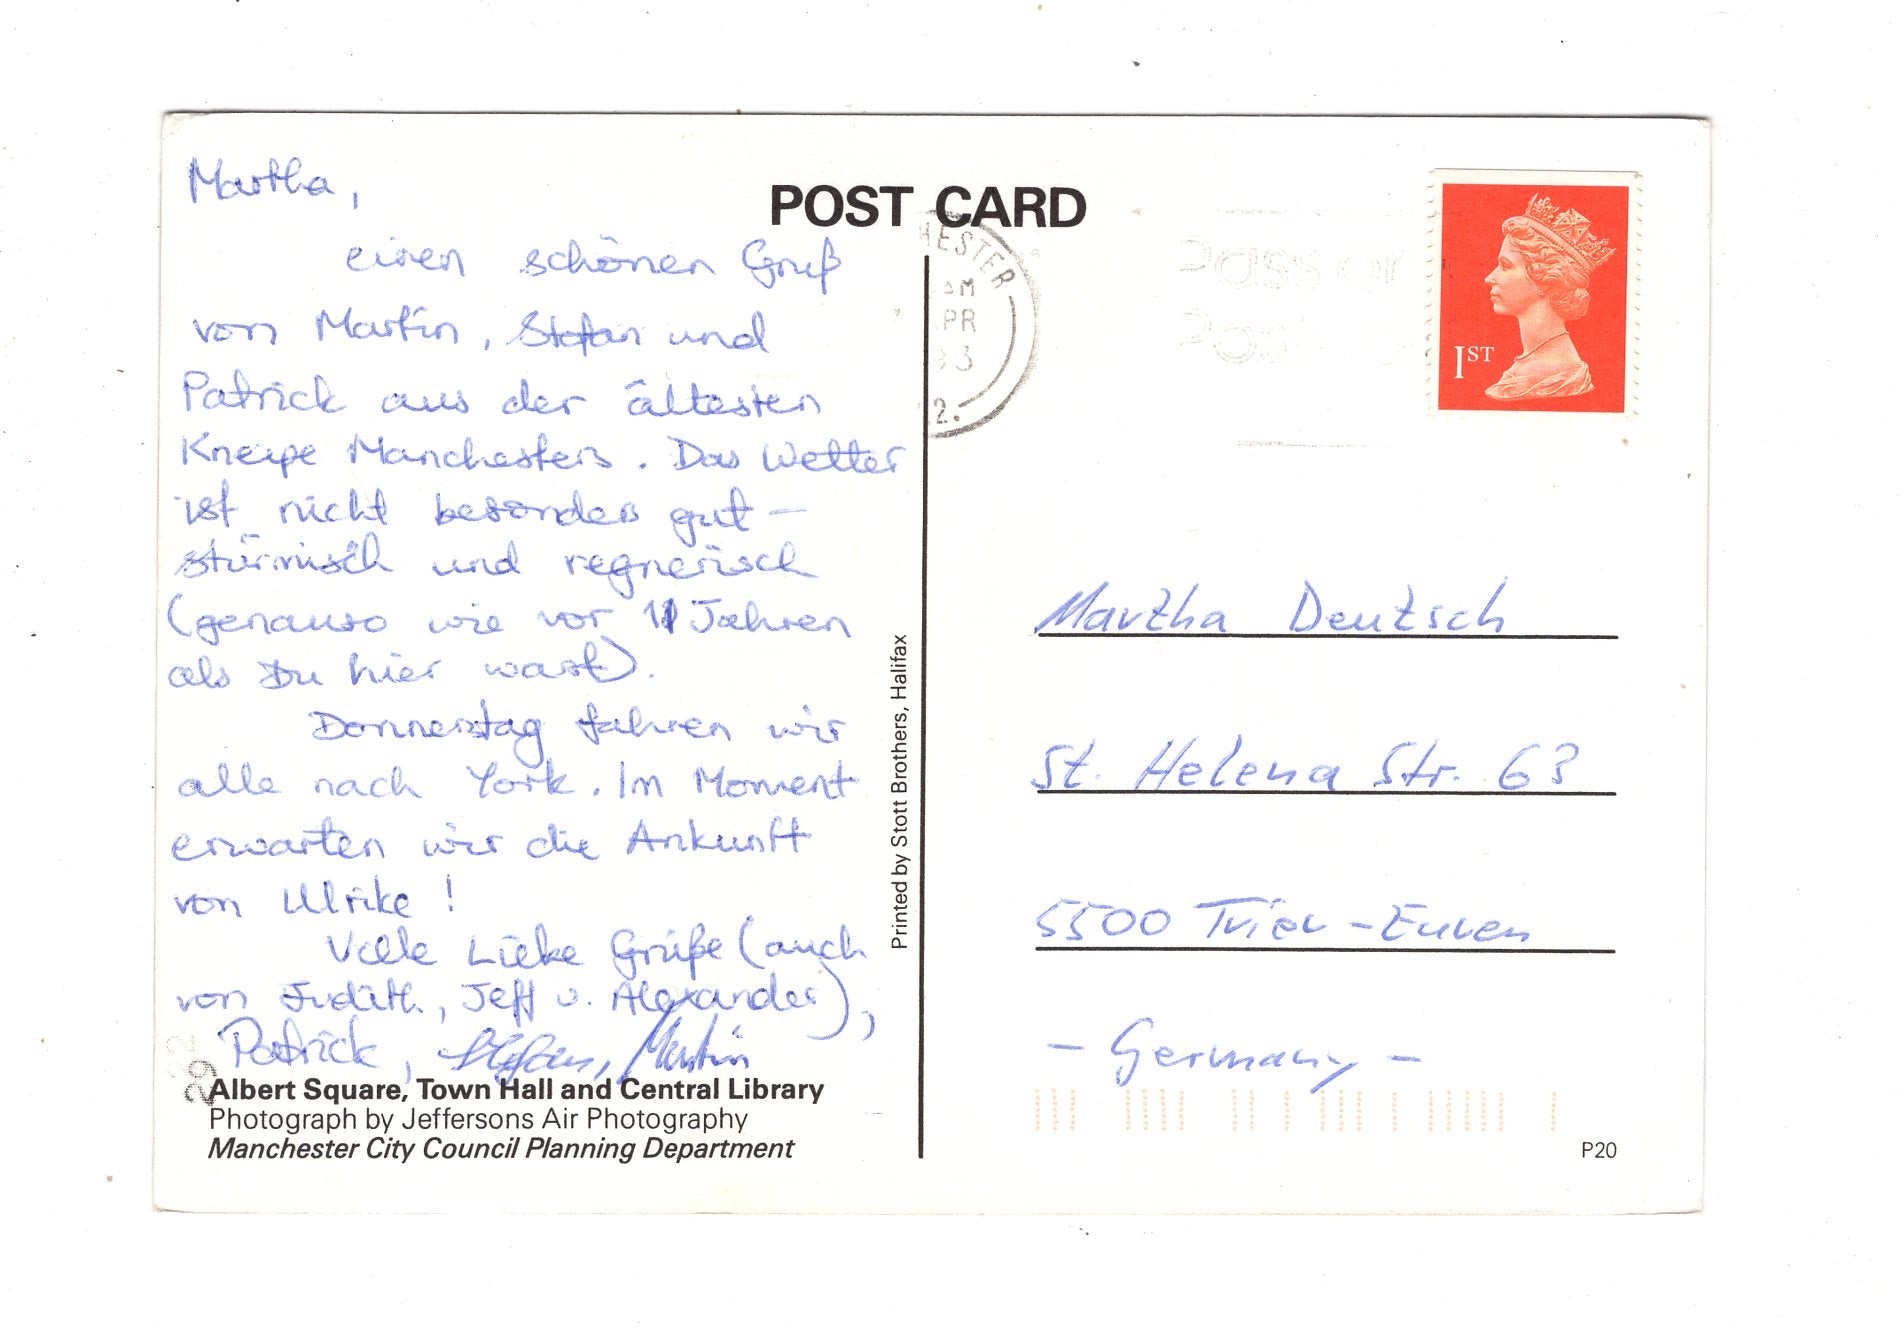 Martha,
einen schönen Gruß
von Martin, Stefan und
Patrick aus der ältesten
Kneipe Manchesters. Das Wetter
ist nicht besonders gut –
stürmisch und regnerisch
(genauso wie vor 11 Jahren
als Du hier warst).
Donnerstag fahren wir
alle nach York. Im Moment
erwarten wir die Ankunft
von Ulrike!
Viele Liebe Grüße (auch
von Judith, Jeff u. Alexander),
Patrick, Stefan, Martin
292
Albert Square, Town Hall and Central Library
Photograph by Jeffersons Air Photography
Manchester City Council Planning Department
Printed by Stott Brothers, Halifax
POST CARD
HESTER
AM
PR
93
2.
Pass on
Post
1ST
Martha Deutsch
St. Helena Str. 63
5500 Trier-Euren
- Germany -
P20